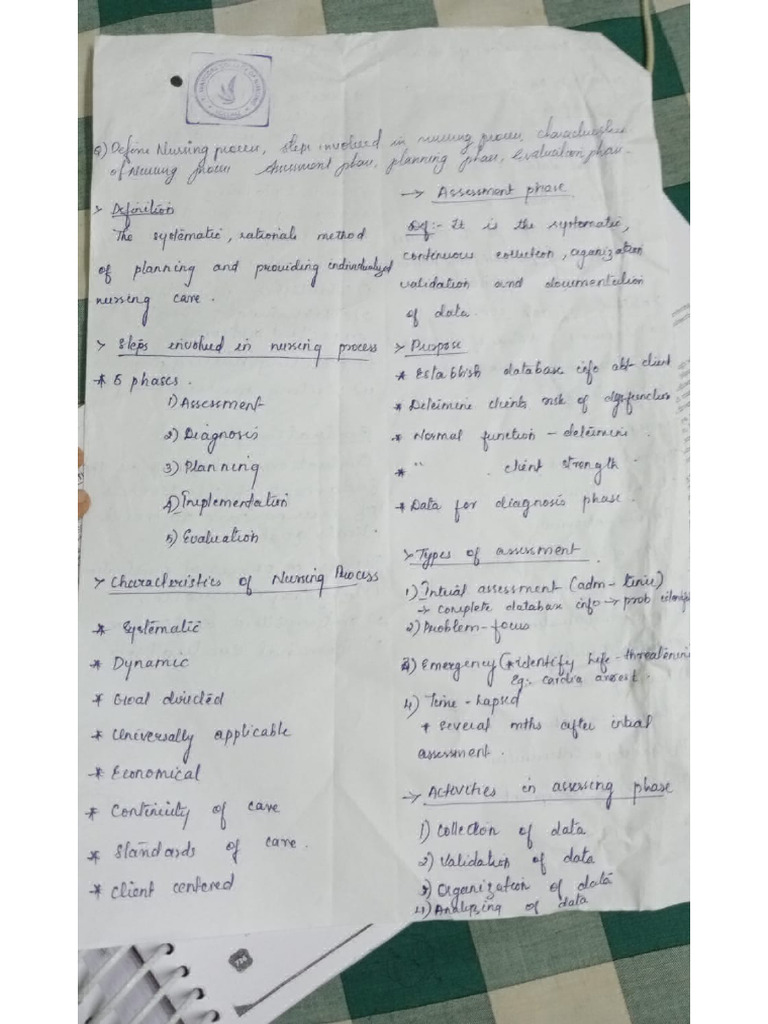 Q) Define Nursing process, steps involved in nursing process characteristics
of Nursing process Assessment phase, planning phase, Evaluation phase.
> Definition
The systematic, rationale method
of planning and providing individualized
nursing care.
> Steps involved in nursing process
* 5 phases.
1) Assessment
2) Diagnosis
3) Planning
4) Implementation
5) Evaluation
> Characteristics of Nursing Process
* Systematic
* Dynamic
* Goal directed
* Universally applicable
* Economical
* Continuity of care
* Standards of care.
* Client centered
→ Assessment phase
Def:- It is the systematic,
continuous collection, organization
validation and documentation
of data.
> Purpose
* Establish database info abt client
* Determine clients risk of dysfunction
* Normal function - determine.
* " client strength
* Data for diagnosis phase.
> Types of assessment
1) Intual assessment (adm - time)
→ complete database info → prob
2) Problem - focus
3) Emergency (*identify life - threatenin
Eg:- cardia arrest.
4) Time - lapsed
* Several mths after intial
assessment.
→ Activities in assessing phase
1) Collection of data
2) Validation of data
3) Organization of data
4) Analyzing of data